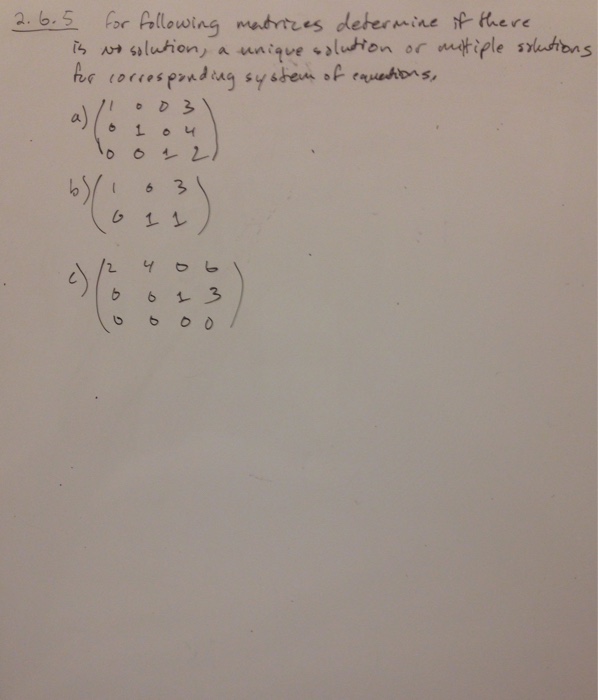 2.6.5 For following matrices determine if there
is no solution, a unique solution or multiple solutions
for corresponding system of equations,
a) ( 1 0 0 3
0 1 0 4
0 0 1 2 )
b) ( 1 0 3
0 1 1 )
c) ( 2 4 0 6
0 0 1 3
0 0 0 0 )